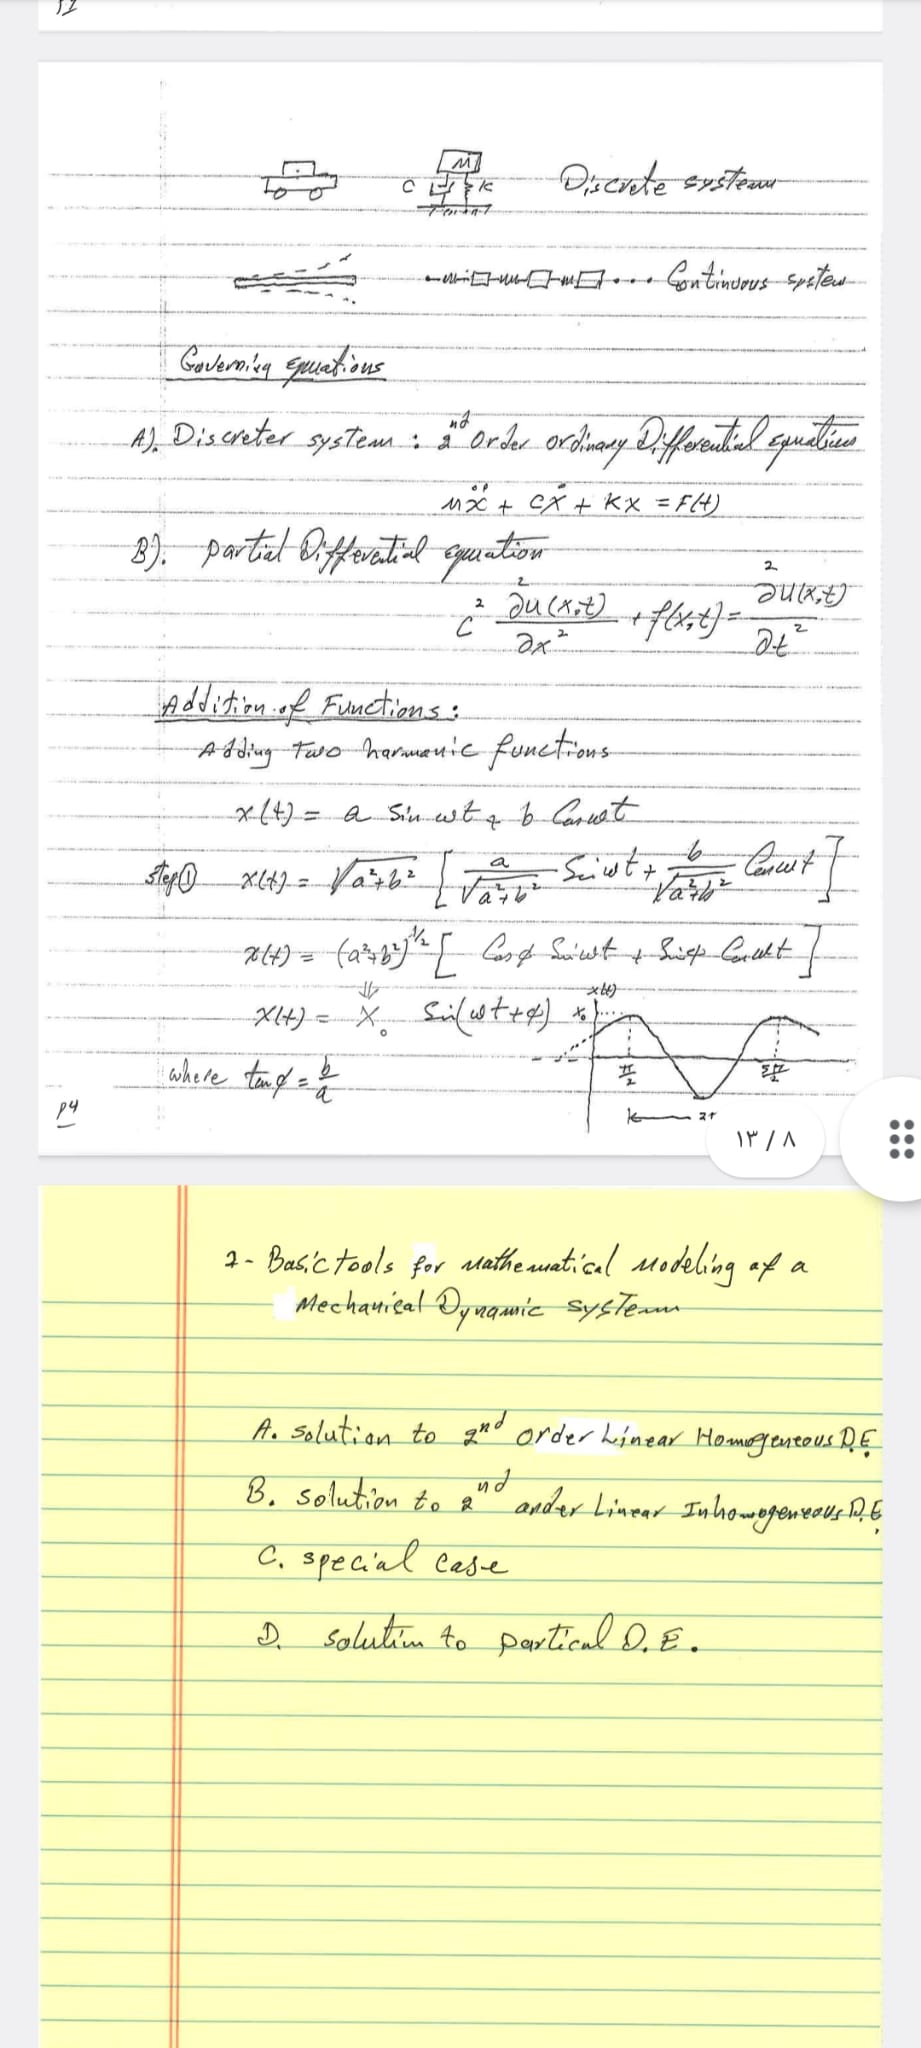 M
C K
Discrete system
Continuous system
Governing Equations
A). Discreter system : 2nd order ordinary Differential equations
Mẍ + Cẋ + Kx = F(t)
B). partial Differential equation
C² ∂²u(x,t)/∂x² + f(x,t) = ∂²u(x,t)/∂t²
Addition of Functions :
Adding Two harmonic functions
x(t) = a Sin ωt + b Cos ωt
step ① x(t) = √(a²+b²) [ a/√(a²+b²) Sin ωt + b/√(a²+b²) Cos ωt ]
x(t) = (a²+b²)^1/2 [ Cos φ Sin ωt + Sin φ Cos ωt ]
⇓
x(t) = X₀ Sin(ωt+φ)
x(t)
x₀
π/2 5π/2
where tan φ = b/a
P4
١٣ / ٨
2- Basic tools for Mathematical Modeling of a
Mechanical Dynamic system
A. solution to 2nd order Linear Homogeneous D.E.
B. solution to 2nd order Linear Inhomogeneous D.E.
C. special case
D. solution to partical D.E.